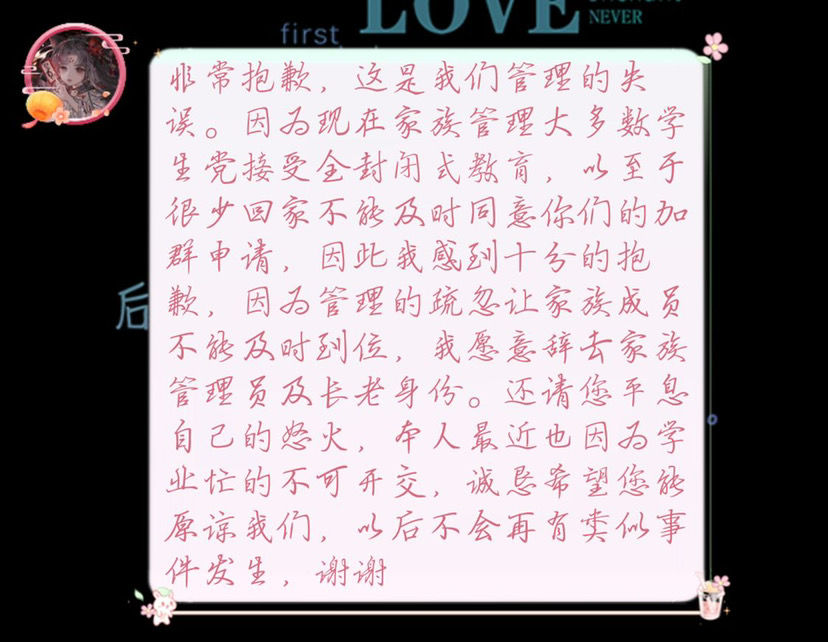 LOVE
NEVER
first
非常抱歉，这是我们管理的失
误。因为现在家族管理大多数学
生党接受全封闭式教育，以至于
很少回家不能及时同意你们的加
群申请，因此我感到十分的抱
歉，因为管理的疏忽让家族成员
不能及时到位，我愿意辞去家族
管理员及长老身份。还请您平息
自己的怒火，本人最近也因为学
业忙的不可开交，诚恳希望您能
原谅我们，以后不会再有类似事
件发生，谢谢
后